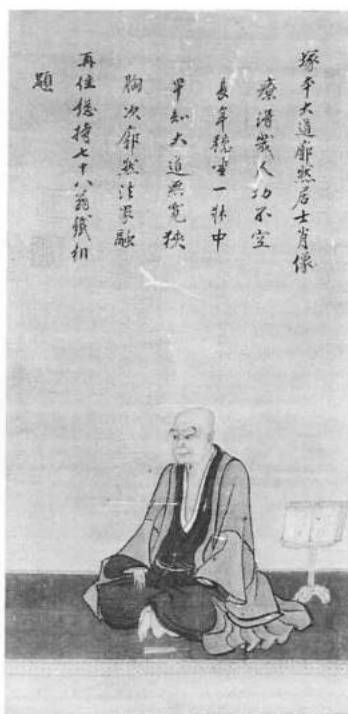 塚本大道廓然居士肖像
療済幾人功不空
長年穏坐一牀中
早知大道無寛狭
胸次廓然法界融
再住総持七十八翁鐵相
題